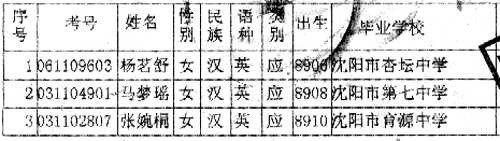 序号 考号 姓名 性别 民族 语种 类别 出生 毕业学校
1 061109603 杨茗舒 女 汉 英 应 8906 沈阳市杏坛中学
2 031104901 马梦瑶 女 汉 英 应 8908 沈阳市第七中学
3 031102807 张婉桐 女 汉 英 应 8910 沈阳市育源中学